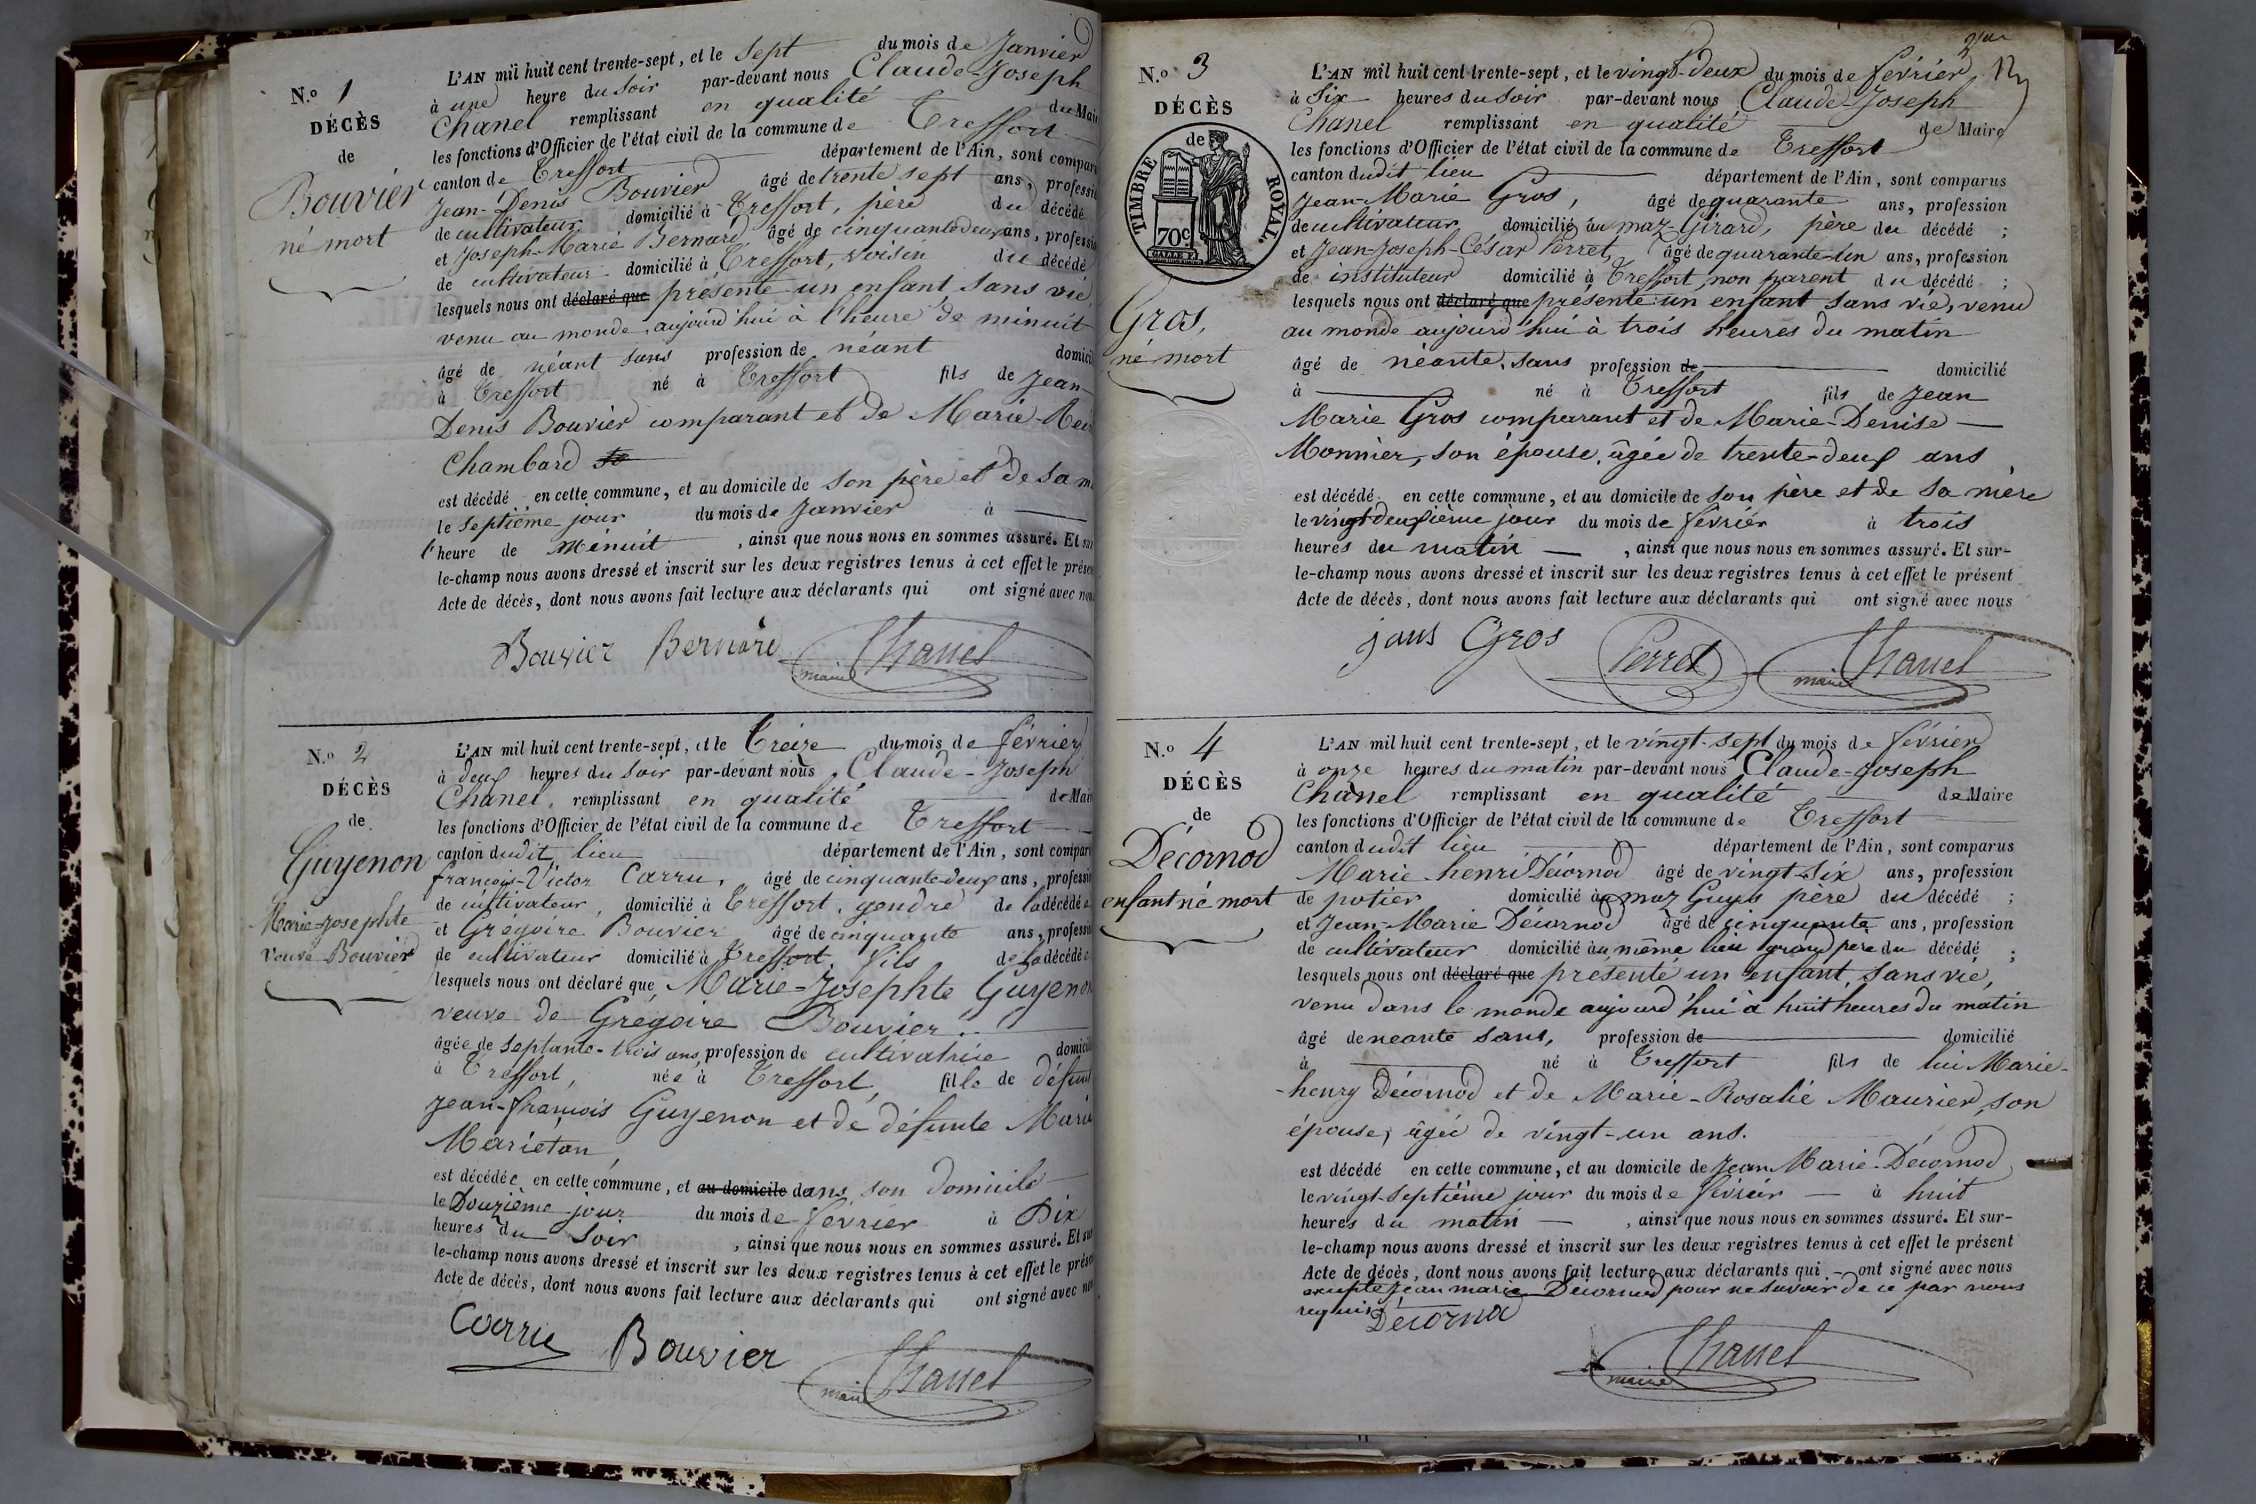 N.º 1
DÉCÈS
de
Bouvier
né mort
L'AN mil huit cent trente-sept, et le sept du mois de Janvier
à une heure du soir par-devant nous Claude-Joseph
Chanel remplissant en qualité du Mair
les fonctions d'Officier de l'état civil de la commune de Treffort
canton de Treffort département de l'Ain, sont compar
Jean-Denis Bouvier âgé de trente sept ans, professi
de cultivateur domicilié à Treffort, père du décédé
et Joseph-Marie Bernard âgé de cinquante deux ans, professi
de cultivateur domicilié à Treffort, voisin du décédé
lesquels nous ont déclaré que présenté un enfant sans vie,
venu au monde, aujourd'hui à l'heure de minuit
âgé de néant sans profession de néant domicil
à Treffort né à Treffort fils de Jean-
Denis Bouvier comparant et de Marie
Chambard
est décédé en cette commune, et au domicile de son père et de sa m
le septième jour du mois de Janvier à
l'heure de Minuit, ainsi que nous nous en sommes assuré. Et sur
le-champ nous avons dressé et inscrit sur les deux registres tenus à cet effet le prése
Acte de décès, dont nous avons fait lecture aux déclarants qui ont signé avec nou
Bouvier Bernard Chanel
maire
N.º 2
DÉCÈS
de
Guyenon
Marie-Josephte
veuve Bouvier
L'AN mil huit cent trente-sept, et le Treize du mois de février
à deux heures du soir par-devant nous Claude-Joseph
Chanel, remplissant en qualité de Mair
les fonctions d'Officier de l'état civil de la commune de Treffort
canton dudit lieu département de l'Ain, sont compar
françois-Victor Carru, âgé de cinquante-deux ans, professi
de cultivateur, domicilié à Treffort, gendre de la décédée
et Grégoire Bouvier âgé de cinquante ans, professi
de cultivateur domicilié à Treffort, fils de la décédée
lesquels nous ont déclaré que Marie-Josephte Guyenon
veuve de Grégoire Bouvier.
âgée de septante-trois ans, profession de cultivatrice domicil
à Treffort, née à Treffort, fille de défunt
Jean-françois Guyenon et de défunte Marie
Mariéton
est décédée en cette commune, et au domicile dans son domicile
le Douzième jour du mois de février à Dix
heures du soir, ainsi que nous nous en sommes assuré. Et sur
le-champ nous avons dressé et inscrit sur les deux registres tenus à cet effet le prése
Acte de décès, dont nous avons fait lecture aux déclarants qui ont signé avec no
Carru Bouvier Chanel
maire
N.º 3
DÉCÈS
de
TIMBRE ROYAL.
70c.
Gros,
né mort
L'AN mil huit cent trente-sept, et le vingt-deux du mois de février
à six heures du soir par-devant nous Claude-Joseph
Chanel remplissant en qualité de Maire
les fonctions d'Officier de l'état civil de la commune de Treffort
canton dudit lieu département de l'Ain, sont comparus
Jean-Marie Gros, âgé de quarante ans, profession
de cultivateur domicilié au maz-Girard, père du décédé ;
et Jean-Joseph-César Perret, âgé de quarante-un ans, profession
de instituteur domicilié à Treffort, non parent du décédé ;
lesquels nous ont déclaré que présenté un enfant sans vie, venu
au monde aujourd'hui à trois heures du matin
âgé de néante, sans profession de domicilié
à né à Treffort fils de Jean
Marie Gros comparant et de Marie-Denise
Monnier, son épouse, âgée de trente-deux ans
est décédé en cette commune, et au domicile de son père et de sa mère
le vingt deuxième jour du mois de février à trois
heures du matin, ainsi que nous nous en sommes assuré. Et sur-
le-champ nous avons dressé et inscrit sur les deux registres tenus à cet effet le présent
Acte de décès, dont nous avons fait lecture aux déclarants qui ont signé avec nous
Gros Perret Chanel
maire
N.º 4
DÉCÈS
de
Décornod
enfant né mort
L'AN mil huit cent trente-sept, et le vingt-sept du mois de février
à onze heures du matin par-devant nous Claude-Joseph
Chanel remplissant en qualité de Maire
les fonctions d'Officier de l'état civil de la commune de Treffort
canton dudit lieu département de l'Ain, sont comparus
Marie-henri Décornod âgé de vingt-six ans, profession
de potier domicilié au maz Guyu père du décédé ;
et Jean-Marie Décornod âgé de cinquante ans, profession
de cultivateur domicilié au même lieu grand père du décédé ;
lesquels nous ont déclaré que présenté un enfant, sans vie,
venu dans le monde aujourd'hui à huit heures du matin
âgé de néante sans, profession de domicilié
à né à Treffort fils de lui Marie-
-henry Décornod et de Marie-Rosalie Maurier, son
épouse, âgée de vingt-un ans.
est décédé en cette commune, et au domicile de Jean Marie Décornod
le vingt-septième jour du mois de février à huit
heures du matin, ainsi que nous nous en sommes assuré. Et sur-
le-champ nous avons dressé et inscrit sur les deux registres tenus à cet effet le présent
Acte de décès, dont nous avons fait lecture aux déclarants qui ont signé avec nous
excepté Jean marie Décornod pour ne savoir de ce par nous
requis. Décornod
Chanel
maire